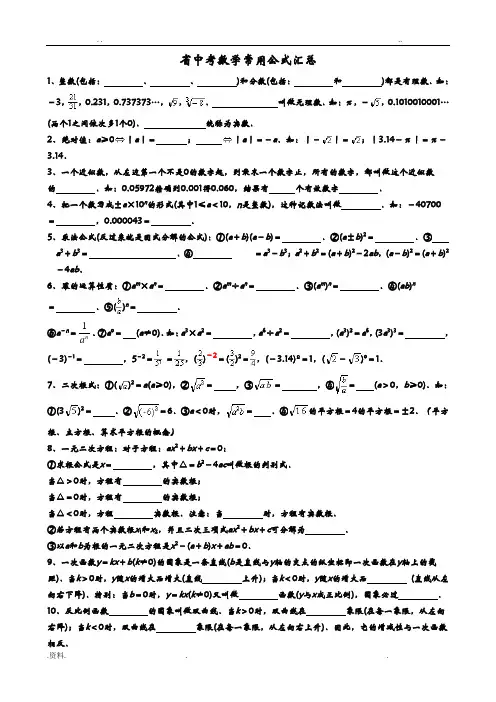 省中考数学常用公式汇总
1、整数(包括:　　、　　、　　)和分数(包括:　　和　　)都是有理数．如:
－3，21/31，0.231，0.737373…，√9，∛－8．　　叫做无理数．如：π，－√5，0.1010010001…
(两个1之间依次多1个0)．　　统称为实数．
2、绝对值：a≥0⇔｜a｜＝　　；　　⇔｜a｜＝－a．如：｜－√2｜＝√2；｜3.14－π｜＝π－
3.14．
3、一个近似数，从左边第一个不是0的数字起，到最末一个数字止，所有的数字，都叫做这个近似数
的　　．如：0.05972精确到0.001得0.060，结果有　　个有效数字　　．
4、把一个数写成±a×10ⁿ的形式(其中1≤a＜10，n是整数)，这种记数法叫做　　．如：－40700
＝　　，0.000043＝　　．
5、乘法公式(反过来就是因式分解的公式)：①(a＋b)(a－b)＝　　．②(a±b)²＝　　．③
a³＋b³＝　　．④　　＝a³－b³；a²＋b²＝(a＋b)²－2ab，(a－b)²＝(a＋b)²
－4ab．
6、幂的运算性质：①aᵐ×aⁿ＝　　．②aᵐ÷aⁿ＝　　．③(aᵐ)ⁿ＝　　．④(ab)ⁿ
＝　　．⑤(b/a)ⁿ＝　　．
⑥a⁻ⁿ＝1/aⁿ．⑦a⁰＝　　(a≠0)．如：a³×a²＝　　，a⁶÷a²＝　　，(a³)²＝a⁶，(3a³)³＝　　，
(－3)⁻¹＝　　，5⁻²＝1/5²＝1/25，(2/3)⁻²＝(3/2)²＝9/4，(－3.14)⁰＝1，(√2－√3)⁰＝1．
7、二次根式：①(√a)²＝a(a≥0)，②√a²＝　　，③√ab＝　　，④√(b/a)＝　　(a＞0，b≥0)．如：
①(3√5)²＝　　．②√(-6)²＝6．③a＜0时，√a²b＝　　．④√16的平方根＝4的平方根＝±2．（平方
根、立方根、算术平方根的概念）
8、一元二次方程：对于方程：ax²＋bx＋c＝0：
①求根公式是x＝　　，其中△＝b²－4ac叫做根的判别式．
当△＞0时，方程有　　的实数根；
当△＝0时，方程有　　的实数根；
当△＜0时，方程　　实数根．注意：当　　时，方程有实数根．
②若方程有两个实数根x₁和x₂，并且二次三项式ax²＋bx＋c可分解为　　．
③以a和b为根的一元二次方程是x²－(a＋b)x＋ab＝0．
9、一次函数y＝kx＋b(k≠0)的图象是一条直线(b是直线与y轴的交点的纵坐标即一次函数在y轴上的截
距)．当k＞0时，y随x的增大而增大(直线　　上升)；当k＜0时，y随x的增大而　　(直线从左
向右下降)．特别：当b＝0时，y＝kx(k≠0)又叫做　　函数(y与x成正比例)，图象必过　　．
10、反比例函数　　的图象叫做双曲线．当k＞0时，双曲线在　　象限(在每一象限，从左向
右降)；当k＜0时，双曲线在　　象限(在每一象限，从左向右上升)．因此，它的增减性与一次函数
相反．
.资料.